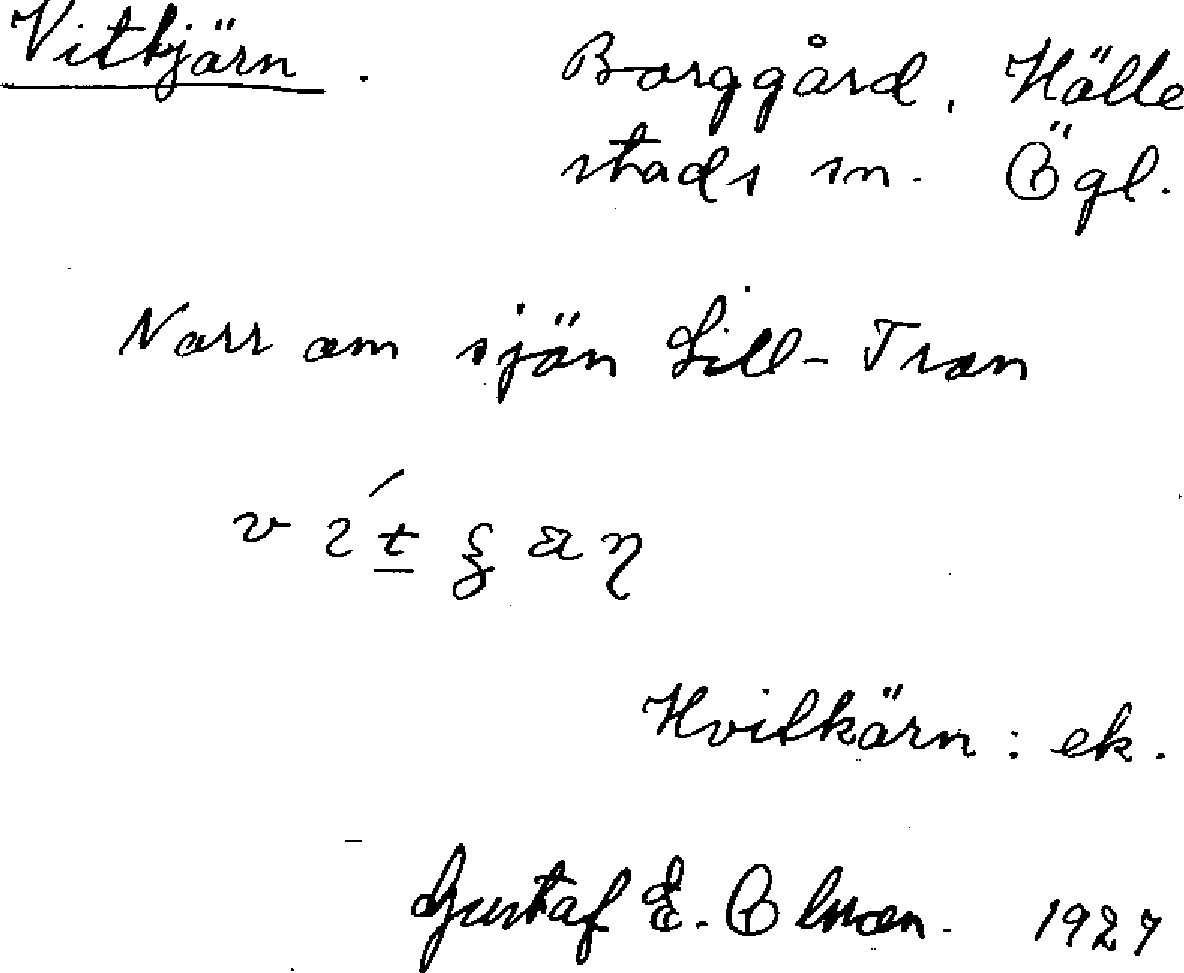 Vitkjärn. Borggård, Hälle
stads sn. Ögl.
Norr om sjön Lill-Tron
Hvitkärn: ek.
Gustaf E. Olsson. 1927